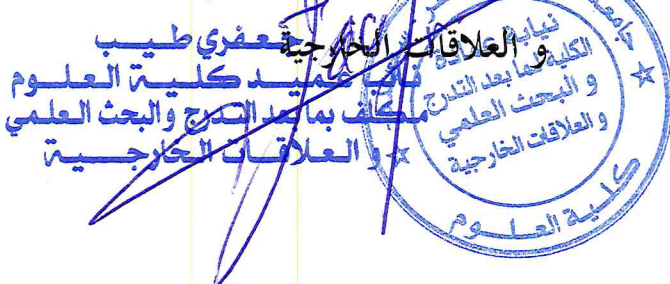 و العلاقات الخارجية
جعفري طيب
نائب عميد كلية العلوم
مكلف بما بعد التدرج والبحث العلمي
و العلاقات الخارجية
نيابة
الكلية لما بعد التدرج
و البحث العلمي
و العلاقات الخارجية
كلية العلوم